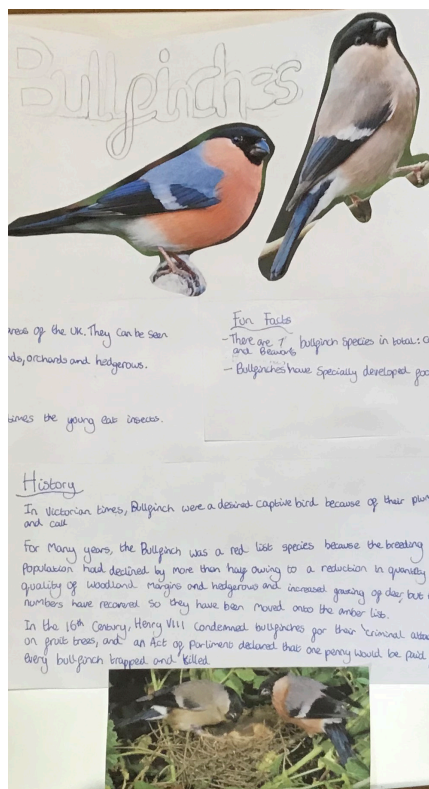 Bullfinches
areas of the UK. They can be seen
nds, orchards and hedgerows.
times the young eat insects.
Fun Facts
- There are 7 bullfinch species in total:
and Beavans
- Bullfinches have specially developed
History
In Victorian times, Bullfinch were a desired captive bird because of their
and call
For Many years, the Bullfinch was a red list species because the breeding
Population had declined by more than half owing to a reduction in quantity
quality of woodland margins and hedgerows and increased grazing of deer, but
numbers have recovered so they have been moved onto the amber list.
In the 16th Century, Henry VIII condemned bullfinches for their 'criminal
on fruit trees, and an Act of Parliment declared that one penny would be paid
every bullfinch trapped and killed